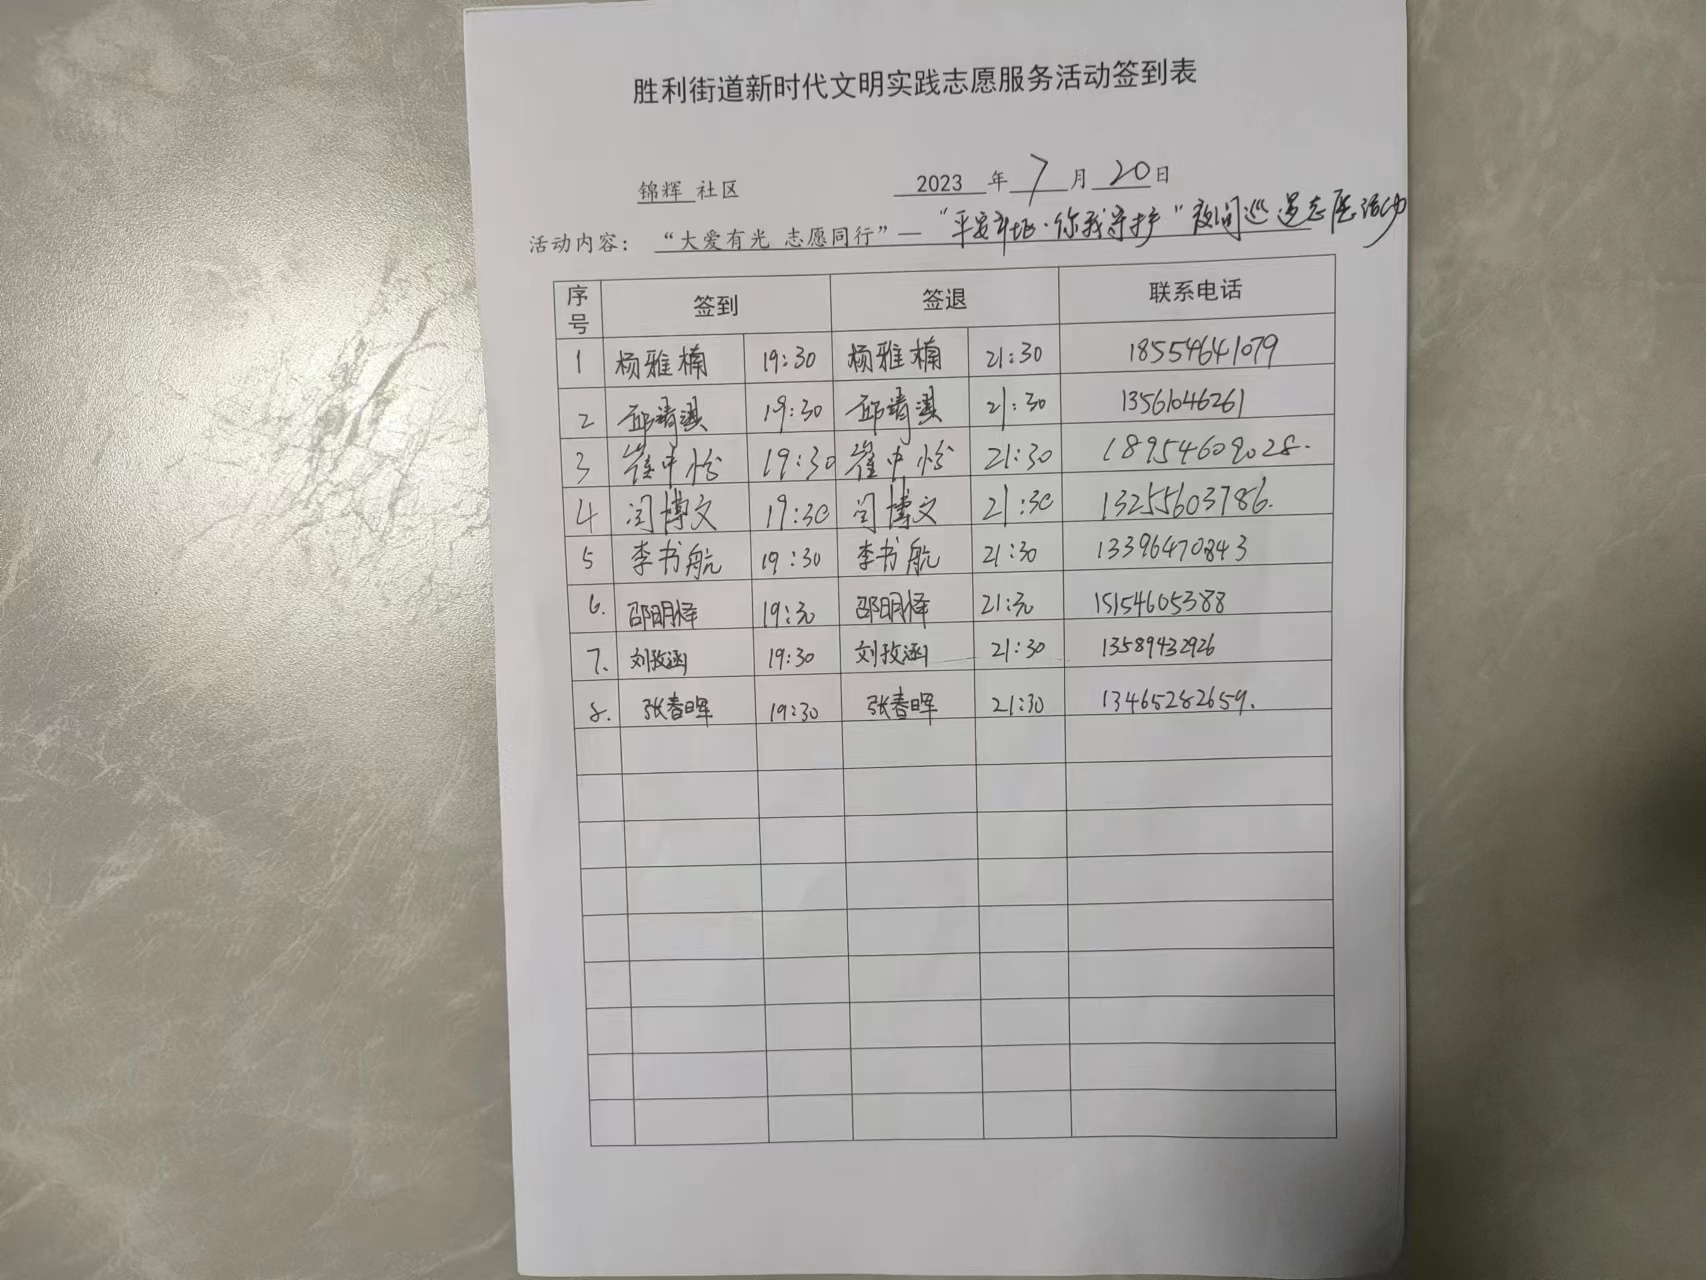 胜利街道新时代文明实践志愿服务活动签到表
锦辉 社区 2023 年 7 月 20 日
活动内容： “大爱有光 志愿同行”— “平安 你我守护”夜间巡逻志愿活动
序号 签到 签退 联系电话
1 杨雅楠 19:30 杨雅楠 21:30 18554641079
2 邱靖淇 19:30 邱靖淇 21:30 13561046261
3 崔中怡 19:30 崔中怡 21:30 18954609028.
4 闫博文 19:30 闫博文 21:30 13255603786.
5 李书航 19:30 李书航 21:30 13396470843
6. 邵明怿 19:30 邵明怿 21:30 15154605388
7. 刘孜涵 19:30 刘孜涵 21:30 13589432926
8. 张春晖 19:30 张春晖 21:30 13465282659.